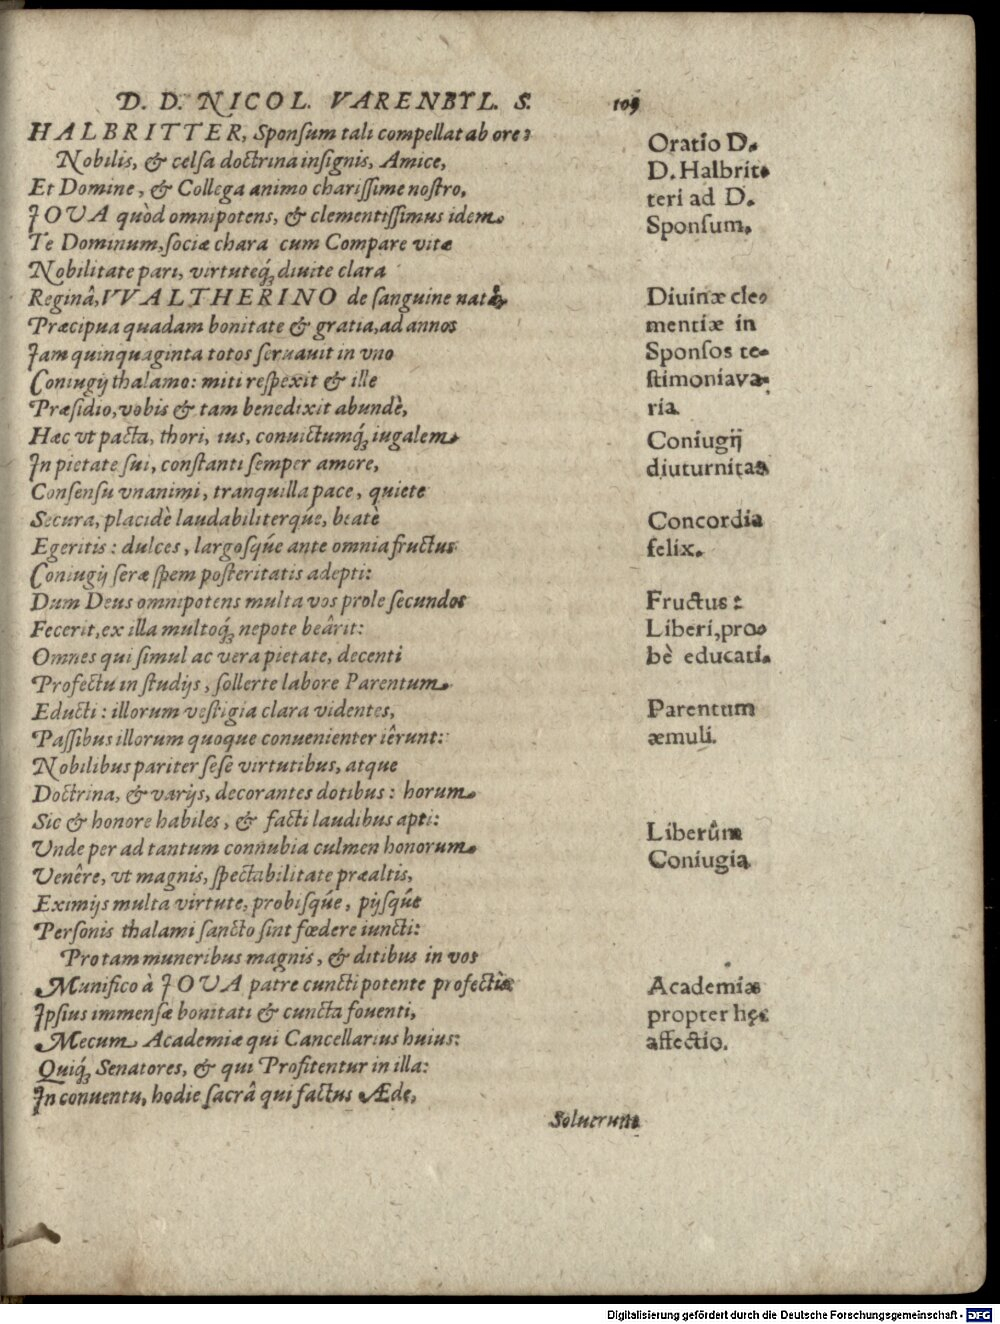 D. D. NICOL. VARENBYL. S. 109
HALBRITTER, Sponſum tali compellat ab ore:
Nobilis, & celſa doctrina inſignis, Amice,
Et Domine, & Collega animo chariſſime noſtro,
JOVA quòd omnipotens, & clementiſſimus idem
Te Dominum, ſociæ chara cum Compare vitæ
Nobilitate pari, virtuteq́; diuite clara
Reginâ, VVALTHERINO de ſanguine natâ,
Præcipua quadam bonitate & gratia, ad annos
Jam quinquaginta totos ſeruauit in vno
Coniugij thalamo: miti reſpexit & ille
Præſidio, vobis & tam benedixit abundè,
Hæc vt pacta, thori, ius, conuictumq́; iugalem
In pietate ſui, conſtanti ſemper amore,
Conſenſu vnanimi, tranquilla pace, quiete
Secura, placidè laudabiliterq́ue, beatè
Egeritis: dulces, largoſq́ue ante omnia fructus
Coniugij ſeræ ſpem poſteritatis adepti:
Dum Deus omnipotens multa vos prole ſecundos
Fecerit, ex illa multoq́; nepote beârit:
Omnes qui ſimul ac vera pietate, decenti
Profectu in ſtudijs, ſollerte labore Parentum
Educti: illorum veſtigia clara videntes,
Paſſibus illorum quoque conuenienter iêrunt:
Nobilibus pariter ſeſe virtutibus, atque
Doctrina, & varijs, decorantes dotibus: horum
Sic & honore habiles, & facti laudibus apti:
Unde per ad tantum connubia culmen honorum
Venêre, vt magnis, ſpectabilitate præaltis,
Eximijs multa virtute, probiſq́ue, pijſq́ue
Perſonis thalami ſancto ſint fœdere iuncti:
Pro tam muneribus magnis, & ditibus in vos
Munifico à JOVA patre cuncti potente profectis
Ipſius immenſæ bonitati & cuncta fouenti,
Mecum Academiæ qui Cancellarius huius:
Quiq́; Senatores, & qui Profitentur in illa:
In conuentu, hodie ſacrâ qui factus Æde,
Soluerunt
Oratio D.
D. Halbrit-
teri ad D.
Sponſum.
Diuinæ cle-
mentiæ in
Sponſos te-
ſtimonia va-
ria.
Coniugij
diuturnitas
Concordia
felix.
Fructus:
Liberi, pro-
bè educati.
Parentum
æmuli.
Liberûm
Coniugia
Academiæ
propter hęc
affectio.
Digitalisierung gefördert durch die Deutsche Forschungsgemeinschaft - DFG